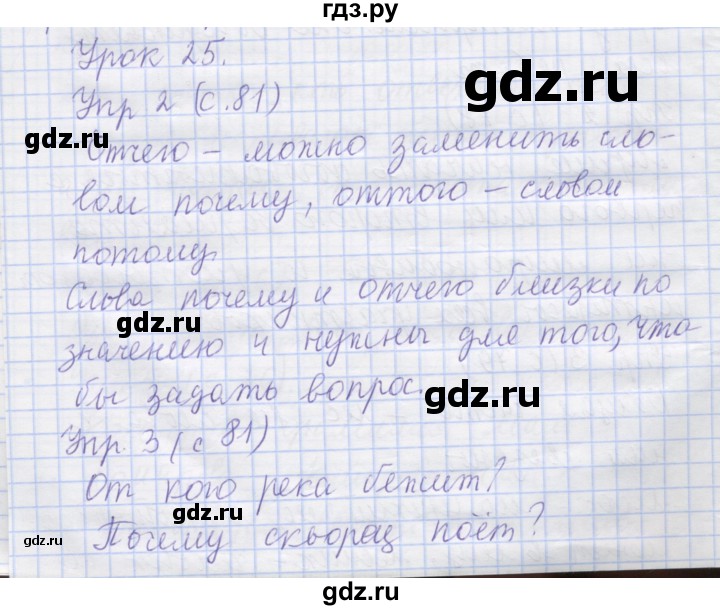 гдз.ру
Урок 25.
gdz.ru
Упр 2 (с.81)
gdz.ru
Отчего – можно заменить сло-
вом почему, оттого – словом
потому.
Слова почему и отчего близки по
gdz.ru
значению и нужны для того, что
бы задать вопрос.
gdz.ru
Упр. 3 (с 81)
От кого река бежит?
gdz.ru
Почему скворец поёт?
gdz.ru
gdz.ru